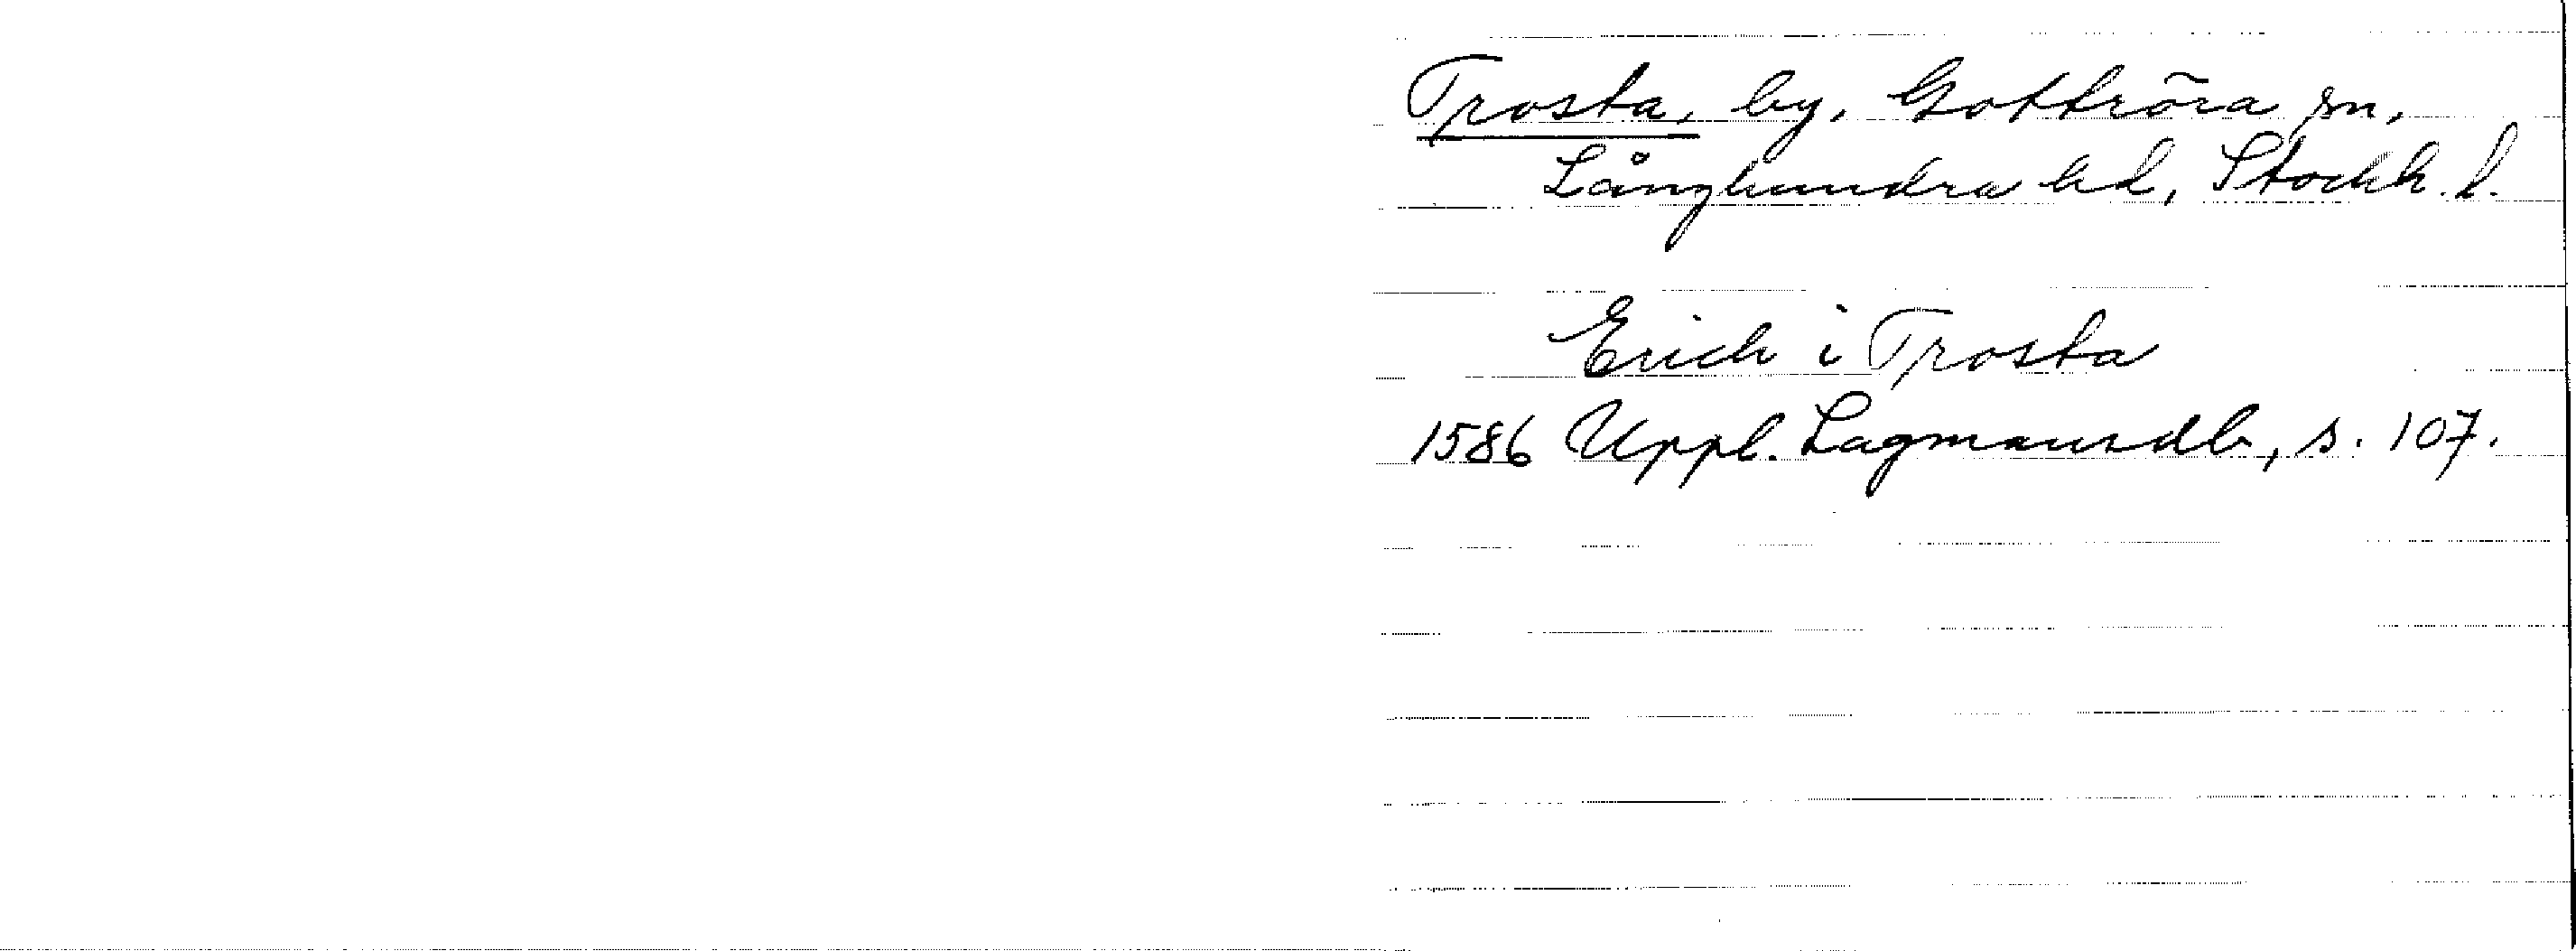 Trosta, by, Gottröra sn,
Långhundra hd, Stockh. l.
Erich i Trosta
1586 Uppl. Lagmansdb, s. 107.